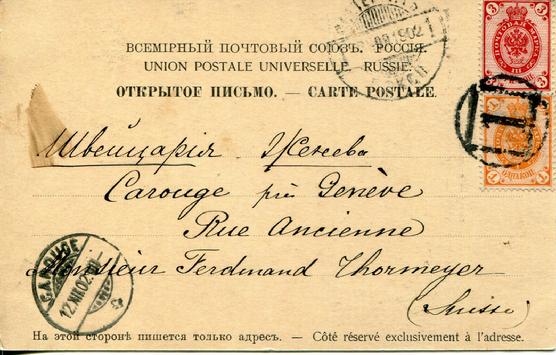 ВСЕМІРНЫЙ ПОЧТОВЫЙ СОЮЗЪ. РОССІЯ.
UNION POSTALE UNIVERSELLE. RUSSIE.
ОТКРЫТОЕ ПИСЬМО. — CARTE POSTALE.
3 3
ПОЧТОВАЯ МАРКА
3 3
1 1
1 1
1902
Швейцарія Женева
Carouge près Genève
Rue Ancienne
Monsieur Ferdinand Thormeyer
(Suisse)
CAROUGE
12.XII.02
На этой сторонѣ пишется только адресъ. — Côté réservé exclusivement à l'adresse.